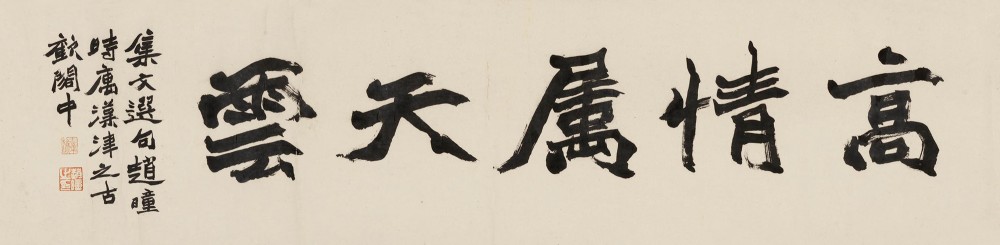 高情属天雲
集文選句趙曈
時庽漢津之古
歡閣中